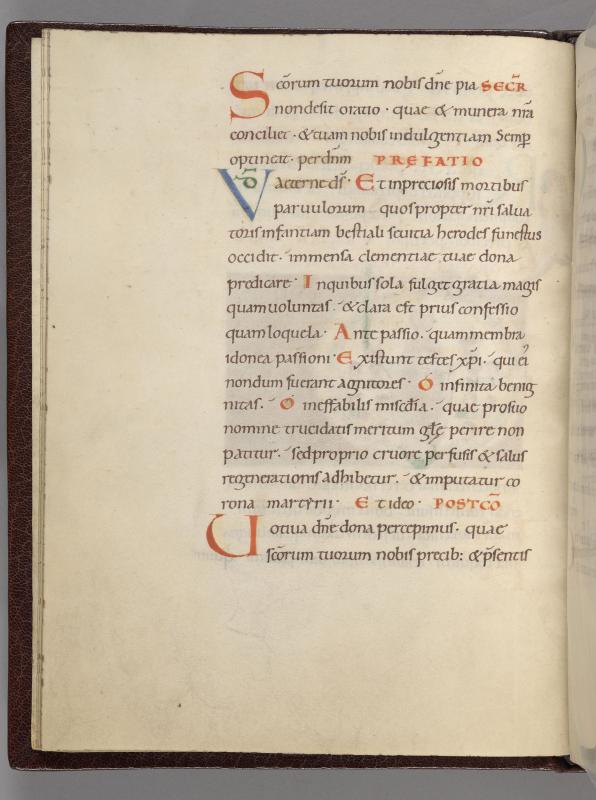 Scōrum tuorum nobis dn̄e pia SECR̄
non desit oratio · quae & munera nr̄a
conciliet · & tuam nobis indulgentiam Semp̄
optineat · per dnm̄ PREFATIO
VD̄ aeterne ds̄ · Et in preciosis mortibus
paruulorum quos propter nr̄i salua
toris infantiam bestiali seuitia herodes funestus
occidit · immensa clementiae tuae dona
predicare · In quibus sola fulget gratia magis
quam uoluntas · & clara est prius confessio
quam loquela · Ante passio · quam membra
idonea passioni · Existunt testes xp̄i · qui ei'
nondum fuerant agnitores · O infinita benig
nitas · O ineffabilis misc̄dia · quae pro suo
nomine trucidatis meritum glę perire non
patitur · sed proprio cruore perfusis & salus
regenerationis adhibetur · & imputatur co
rona martyrii · Et ideo · POSTCŌ
Uotiua dn̄e dona percepimus · quae
scōrum tuorum nobis precib: & p̄sentis